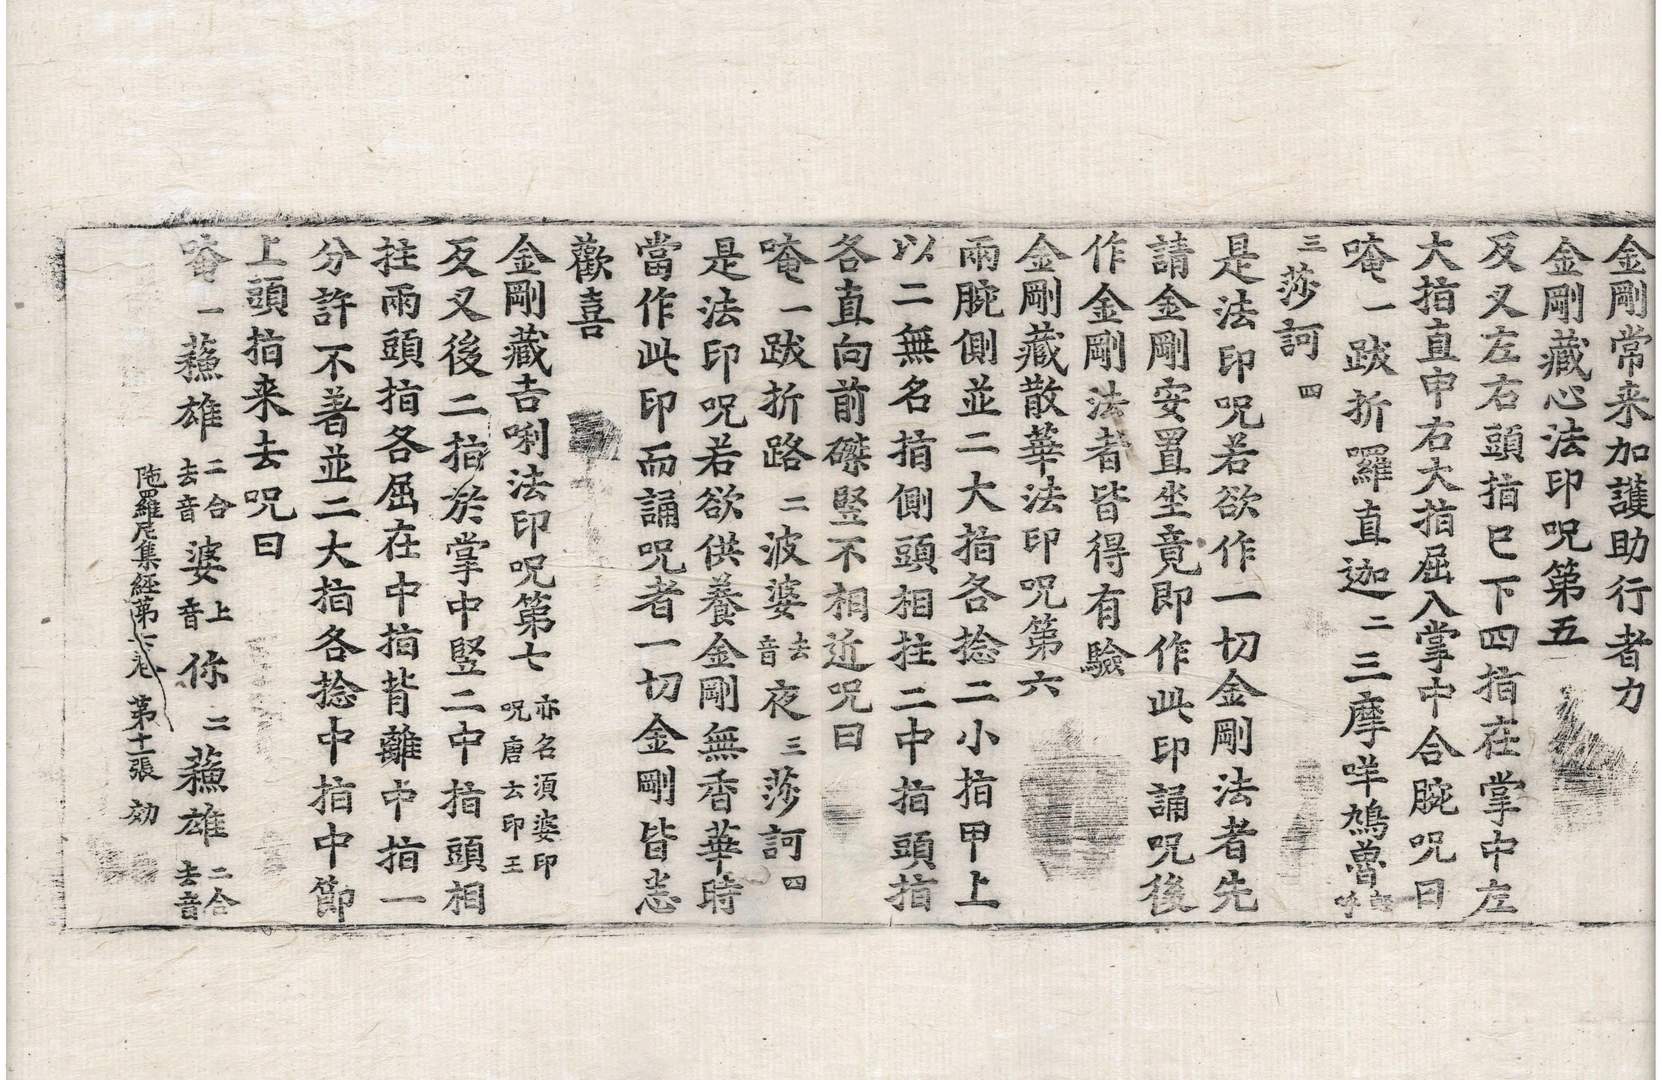 金剛常来加護助行者力
金剛藏心法印呪第五
反叉左右頭指已下四指在掌中左
大指直申右大指屈入掌中合腕呪曰
唵一跋折羅直迦二三摩咩鳩魯
三莎訶四
是法印呪若欲作一切金剛法者先
請金剛安置坐竟即作此印誦呪後
作金剛法者皆得有驗
金剛藏散華法印呪第六
兩腕側並二大指各捻二小指甲上
以二無名指側頭相拄二中指頭指
各直向前磔竪不相近呪曰
唵一跋折路二波婆去音夜三莎訶四
是法印呪若欲供養金剛無香華時
當作此印而誦呪者一切金剛皆悉
歡喜
金剛藏吉唎法印呪第七亦名須婆印呪唐云印王
反叉後二指於掌中竪二中指頭相
拄兩頭指各屈在中指背離中指一
分許不著並二大指各捻中指中節
上頭指来去呪曰
唵一蘓雄二合去音婆上音你二蘓雄二合去音
陁羅尼集經第七卷 第十二張 効